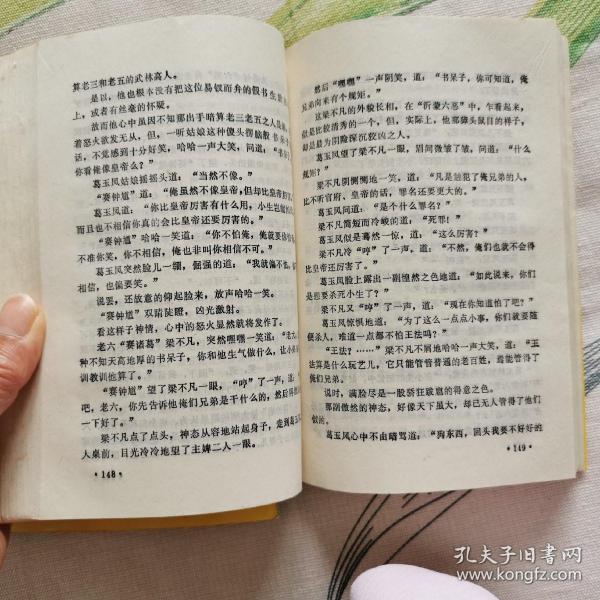 算老三和老五的武林高人。
是以，他也根本没有把这位易钗而弁的假书生
上，或者有丝毫的怀疑。
故而他心中虽因不知那出手暗算老三老五之人是
着怒火欲发无从，但，一听姑娘这种傻头愣脑
话，不觉感到十分好笑，哈哈一声大笑，问道：
你看俺像皇帝么？”
葛玉凤姑娘摇摇头道：“当然不像。”
“赛钟馗”道：“俺虽然不像皇帝，但却比皇帝
葛玉凤道：“你比皇帝厉害有什么用，小生岂
而且也不相信你真的会比皇帝还要厉害的。”
“赛钟馗”哈哈一笑道：“你不怕俺，俺就要
不准你笑，你不相信俺，俺也非叫你相信不可。”
葛玉凤突然脸儿一绷，倔强的道：“我就偏不
相信，也偏要笑。”
说罢，还故意的仰起脸来，放声哈哈一笑。
“赛钟馗”双睛陡瞪，凶光激射。
看这样子神情，心中的怒火显然就将发作了。
老六“赛诸葛”梁不凡，突然嘿嘿一笑道：“老
种不知天高地厚的书呆子，你和他生气做什么，让小
训教训他算了。”
“赛钟馗”望了梁不凡一眼，“哼”了一声，道：
吧，老六，你先告诉他俺们兄弟是干什么的，然后再
一下好了。”
梁不凡点了点头，神态从容地站起身子，走到葛玉
人桌前，目光冷冷地望了主婢二人一眼。
·148·
然后“嘿嘿”一声阴笑，道：“书呆子，你可知道，俺
兄弟向来有个规矩。”
这梁不凡的外貌长相，在“沂蒙六恶”中，乍看起来，
似是比较清秀的一个，但，实际上，他那獐头鼠目的样子，
却是最为阴险深沉狡凶之人。
葛玉凤望了梁不凡一眼，眉间微皱了皱，问道：“什么
规矩？”
梁不凡阴恻恻地一笑，道：“凡是惹犯了俺兄弟的人，
比不听官府、皇帝的话，罪名还要更大的。”
葛玉凤问道：“是什么罪名？”
梁不凡简短而冷峻的道：“死罪！”
葛玉凤似是蓦然一惊，道：“这么厉害？”
梁不凡冷“哼”了一声，道：“不然，俺们也就不会得
比皇帝还厉害了。”
葛玉凤脸上露出一副惶然之色地道：“如此说来，你们
是想要杀死小生了？”
梁不凡又“哼”了一声，道：“现在你知道怕了吧？”
葛玉凤惊惧地道：“为了这么一点点小事，你们就要随
便杀人，难道一点都不怕王法吗？”
“王法？……”梁不凡不屑地哈哈一声大笑，道：“王
法算是什么玩艺儿，它只能管普普通的老百姓，焉能管得了
俺们兄弟。”
说时，满脸尽是一股骄狂跋扈的得意之色。
那阴傲然的神态，好像天下虽大，却已无人管得了他们
似的。
葛玉凤心中不由暗骂道：“狗东西，回头我要不好好的
·149·
孔夫子旧书网
www.kongfz.com